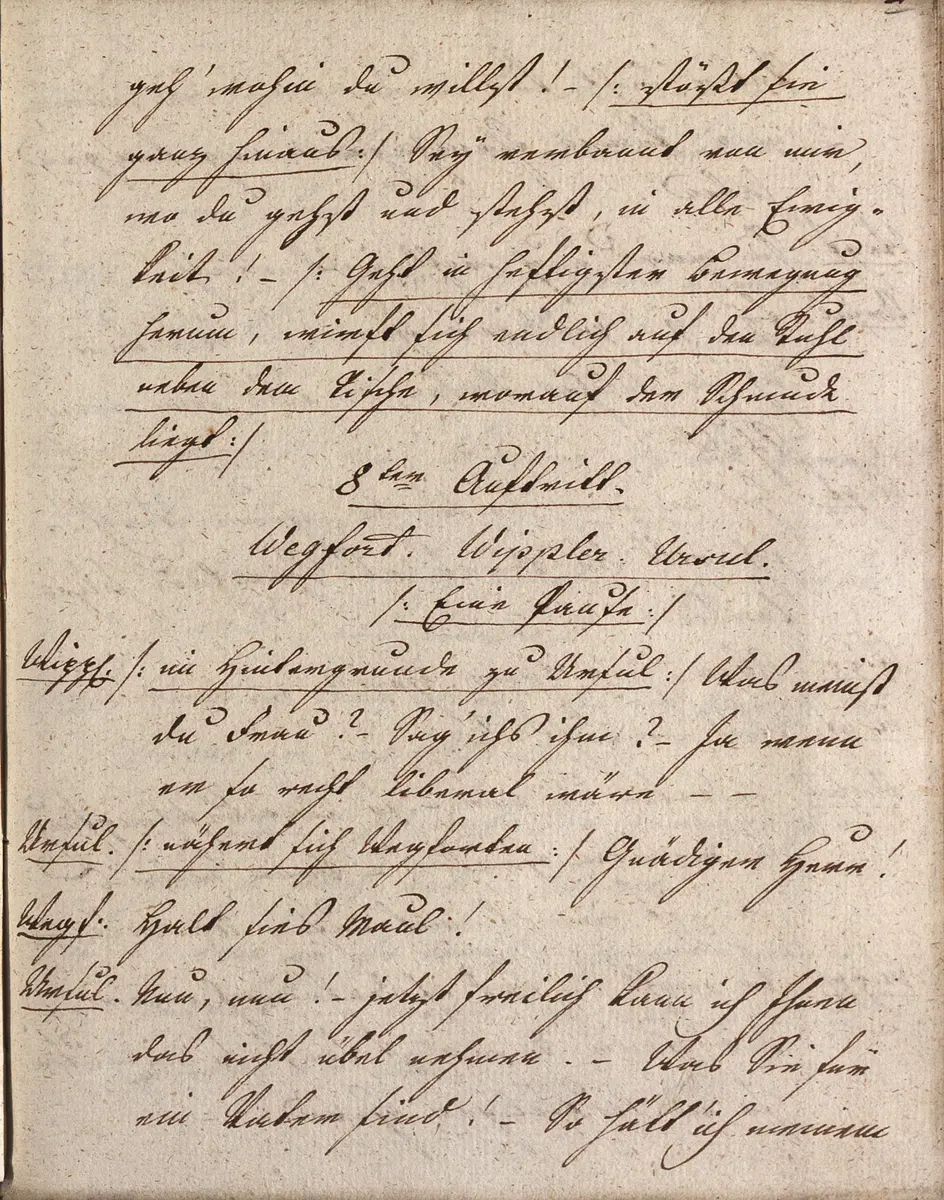 geh' wohin du willst! – /: stößt sie
ganz hinaus :/ Sey verbannt von mir,
wo du gehst und stehst, in alle Ewig-
keit! – /: Geht in heftigster Bewegung
herum, wirft sich endlich auf den Stuhl
neben dem Tische, worauf der Schmuck
liegt :/
8ter Auftritt.
Wegfort. Wippler. Ursul.
/: Eine Pause :/
Wippl. /: im Hintergrunde zu Ursul :/ Was meinst
du Frau? – Sag' ichs ihm? – Ja wenn
er so recht liberal wäre – –
Ursul. /: nähert sich Wegforten :/ Gnädiger Herr!
Wegf. Halt sies Maul!
Ursul. Nun, nun! – jetzt freilich kann ich Ihnen
das nicht übel nehmen. – Was Sie für
ein Vater sind! – So hätt' ich meinem